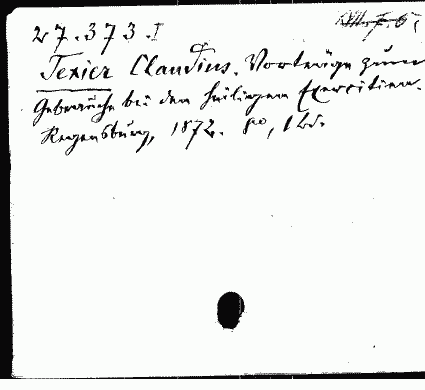 27.373.I
Texier Claudius. Vorträge zum
Gebrauche bei den heiligen Exercitien.
Regensburg, 1872. 8o, 1 Bd.